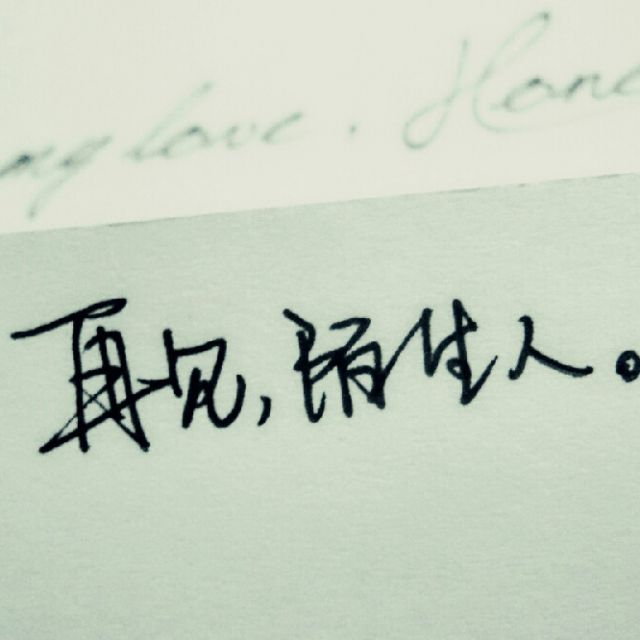 my love. Hone
再见,陌生人。